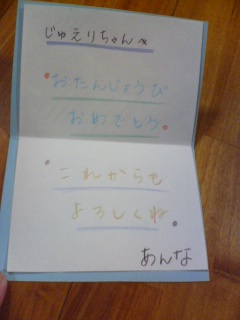 じゅえりちゃんへ
おたんじょうび
おめでとう
これからも
よろしくね
あんな